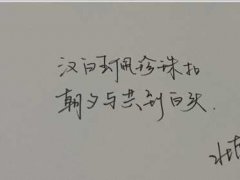 汉白玉佩珍珠扣
朝夕与共到白头.